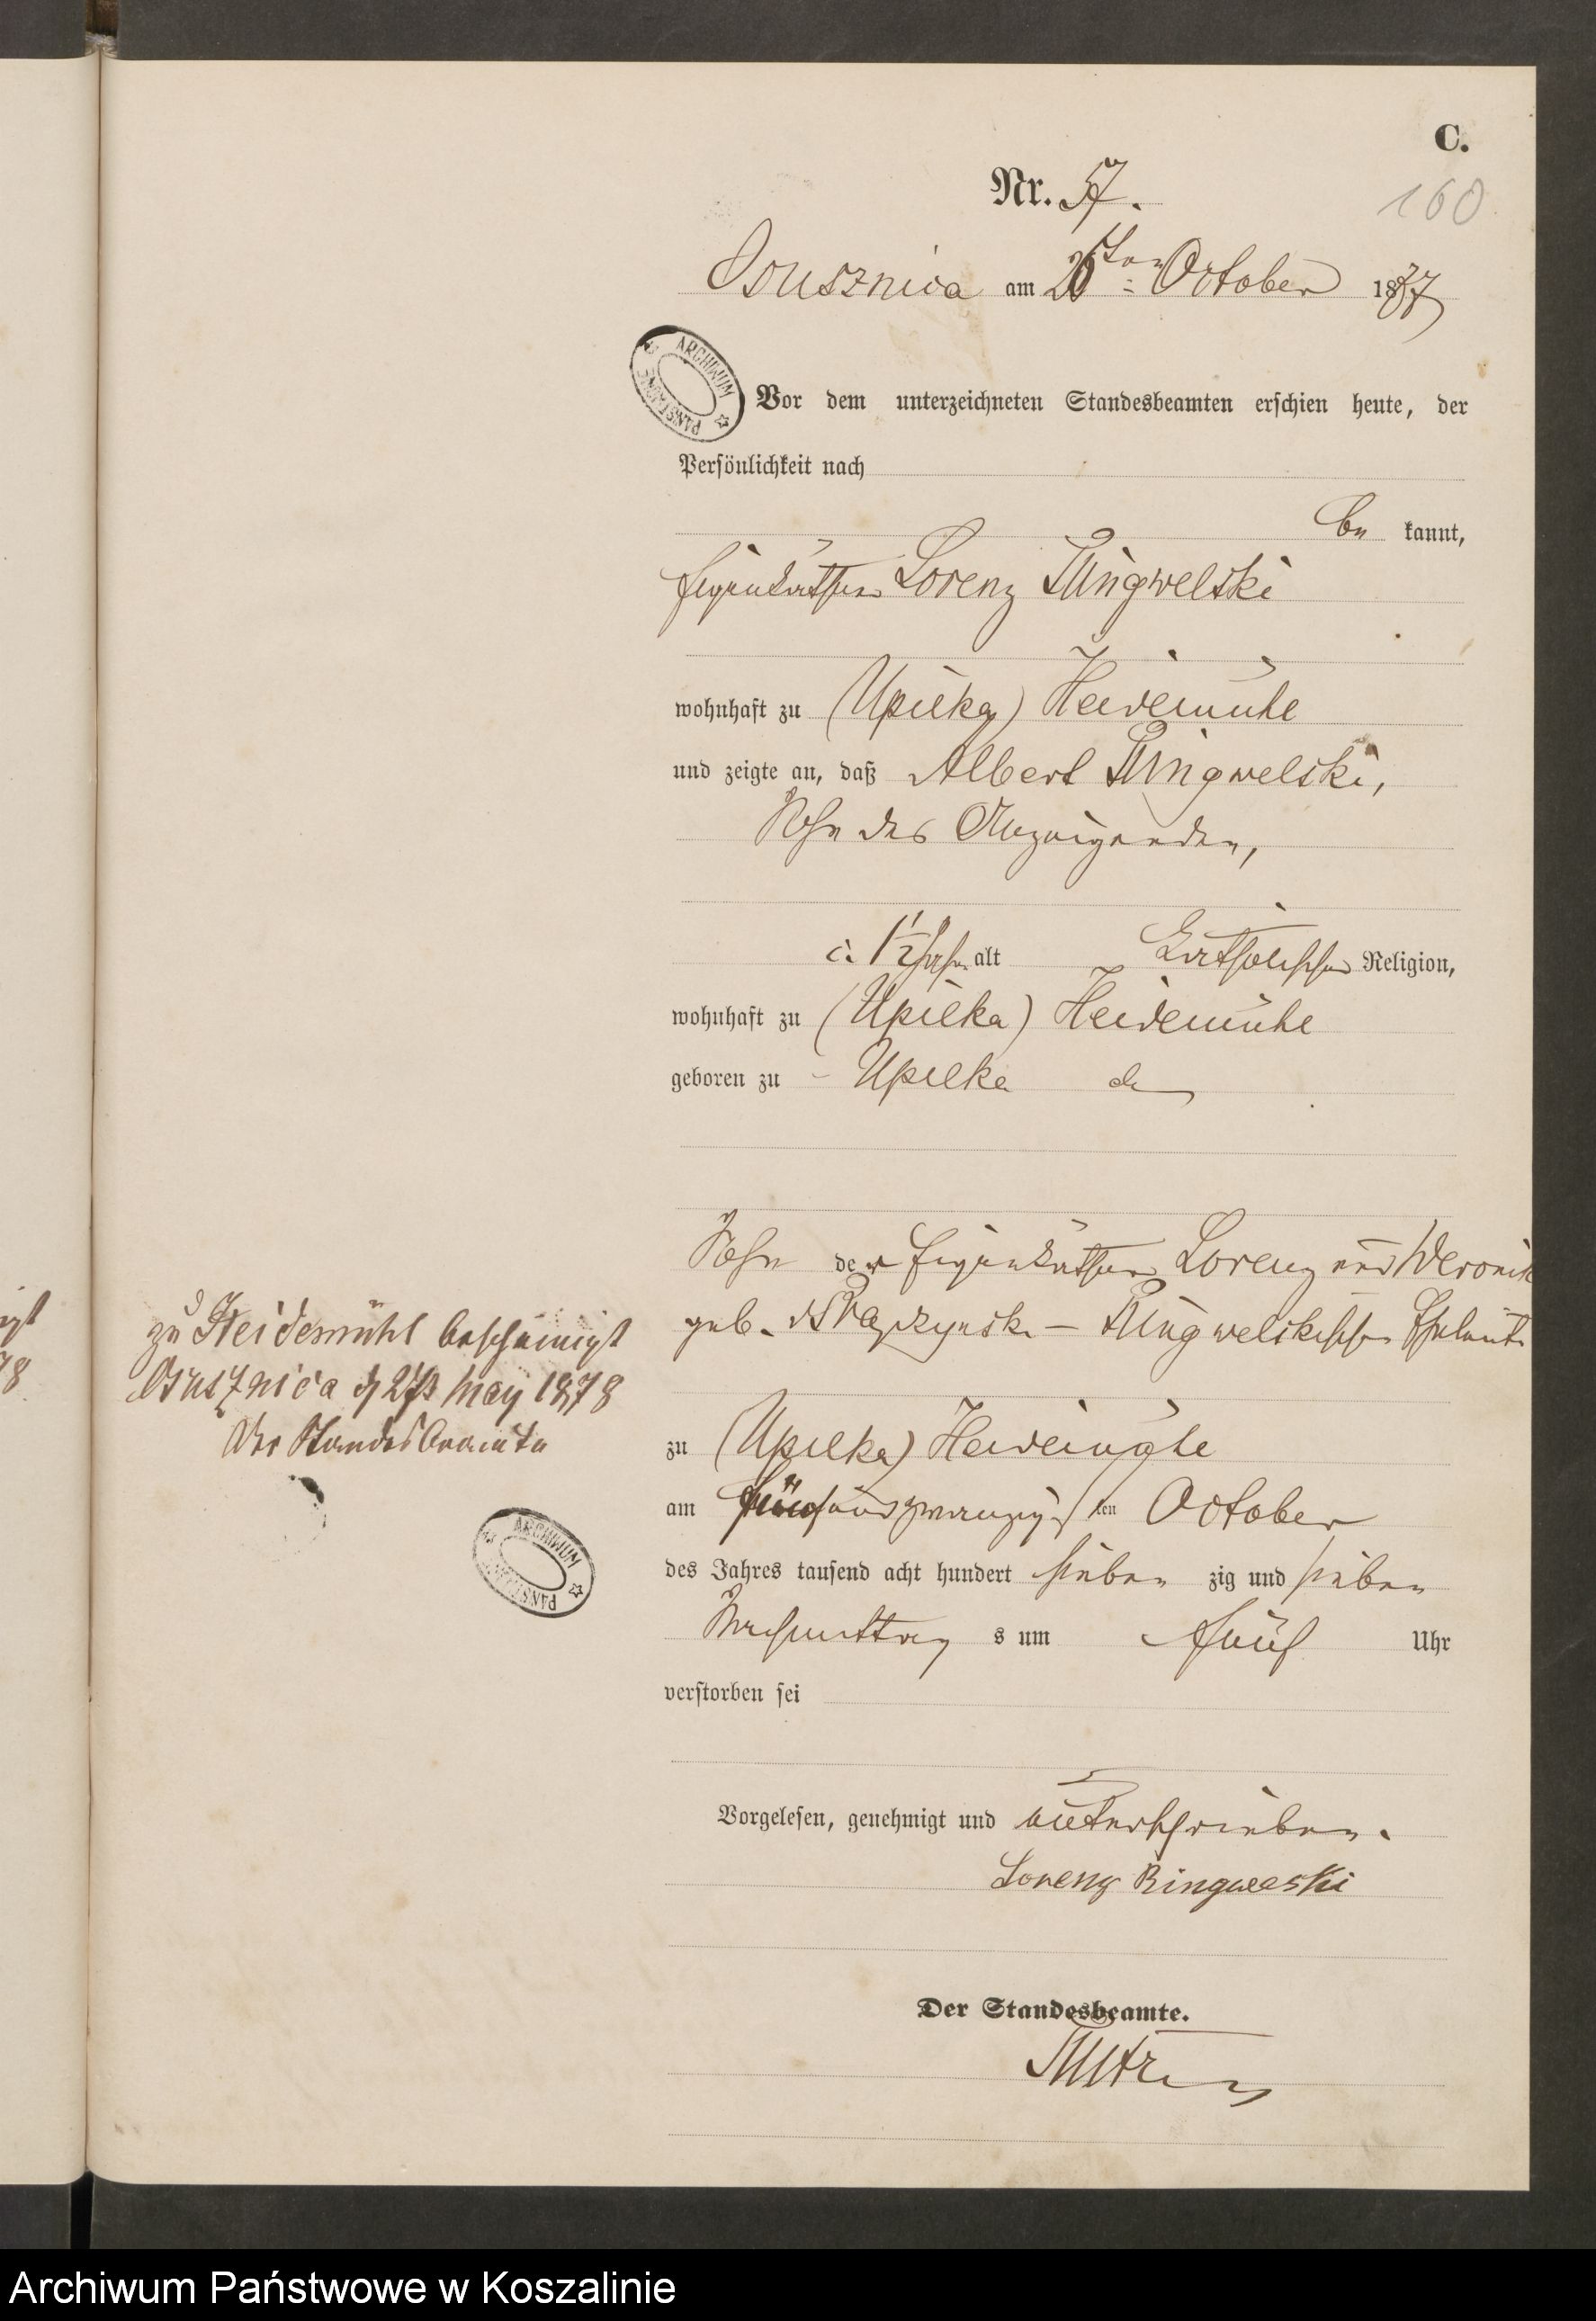 C.
Nr. 57.
160
Osusznica am 26ten October 1877
Vor dem unterzeichneten Standesbeamten erschien heute, der
Persönlichkeit nach
be kannt,
Eigenkäthner Lorenz Ringwelski
wohnhaft zu (Upilka) Heidemühle
und zeigte an, daß Albert Ringwelski,
Sohn des Anzeigenden,
1½ Jahr alt katholischer Religion,
wohnhaft zu (Upilka) Heidemühle
geboren zu Upilka
Sohn der Eigenkäthner Lorenz und Veronik
geb. Ringwelskischen Eheleute
zu (Upilka) Heidemühle
am fünfundzwanzigsten October
des Jahres tausend acht hundert sieben zig und sieben
Nachmittag s um fünf Uhr
verstorben sei
Vorgelesen, genehmigt und unterschrieben.
Lorenz Ringweski
Der Standesbeamte.
zu Heidemühl bescheinigt
Osusznica d 27 May 1878
Der Standes Beamte
ARCHIWUM PAŃSTWOWE
ARCHIWUM PAŃSTWOWE
Archiwum Państwowe w Koszalinie